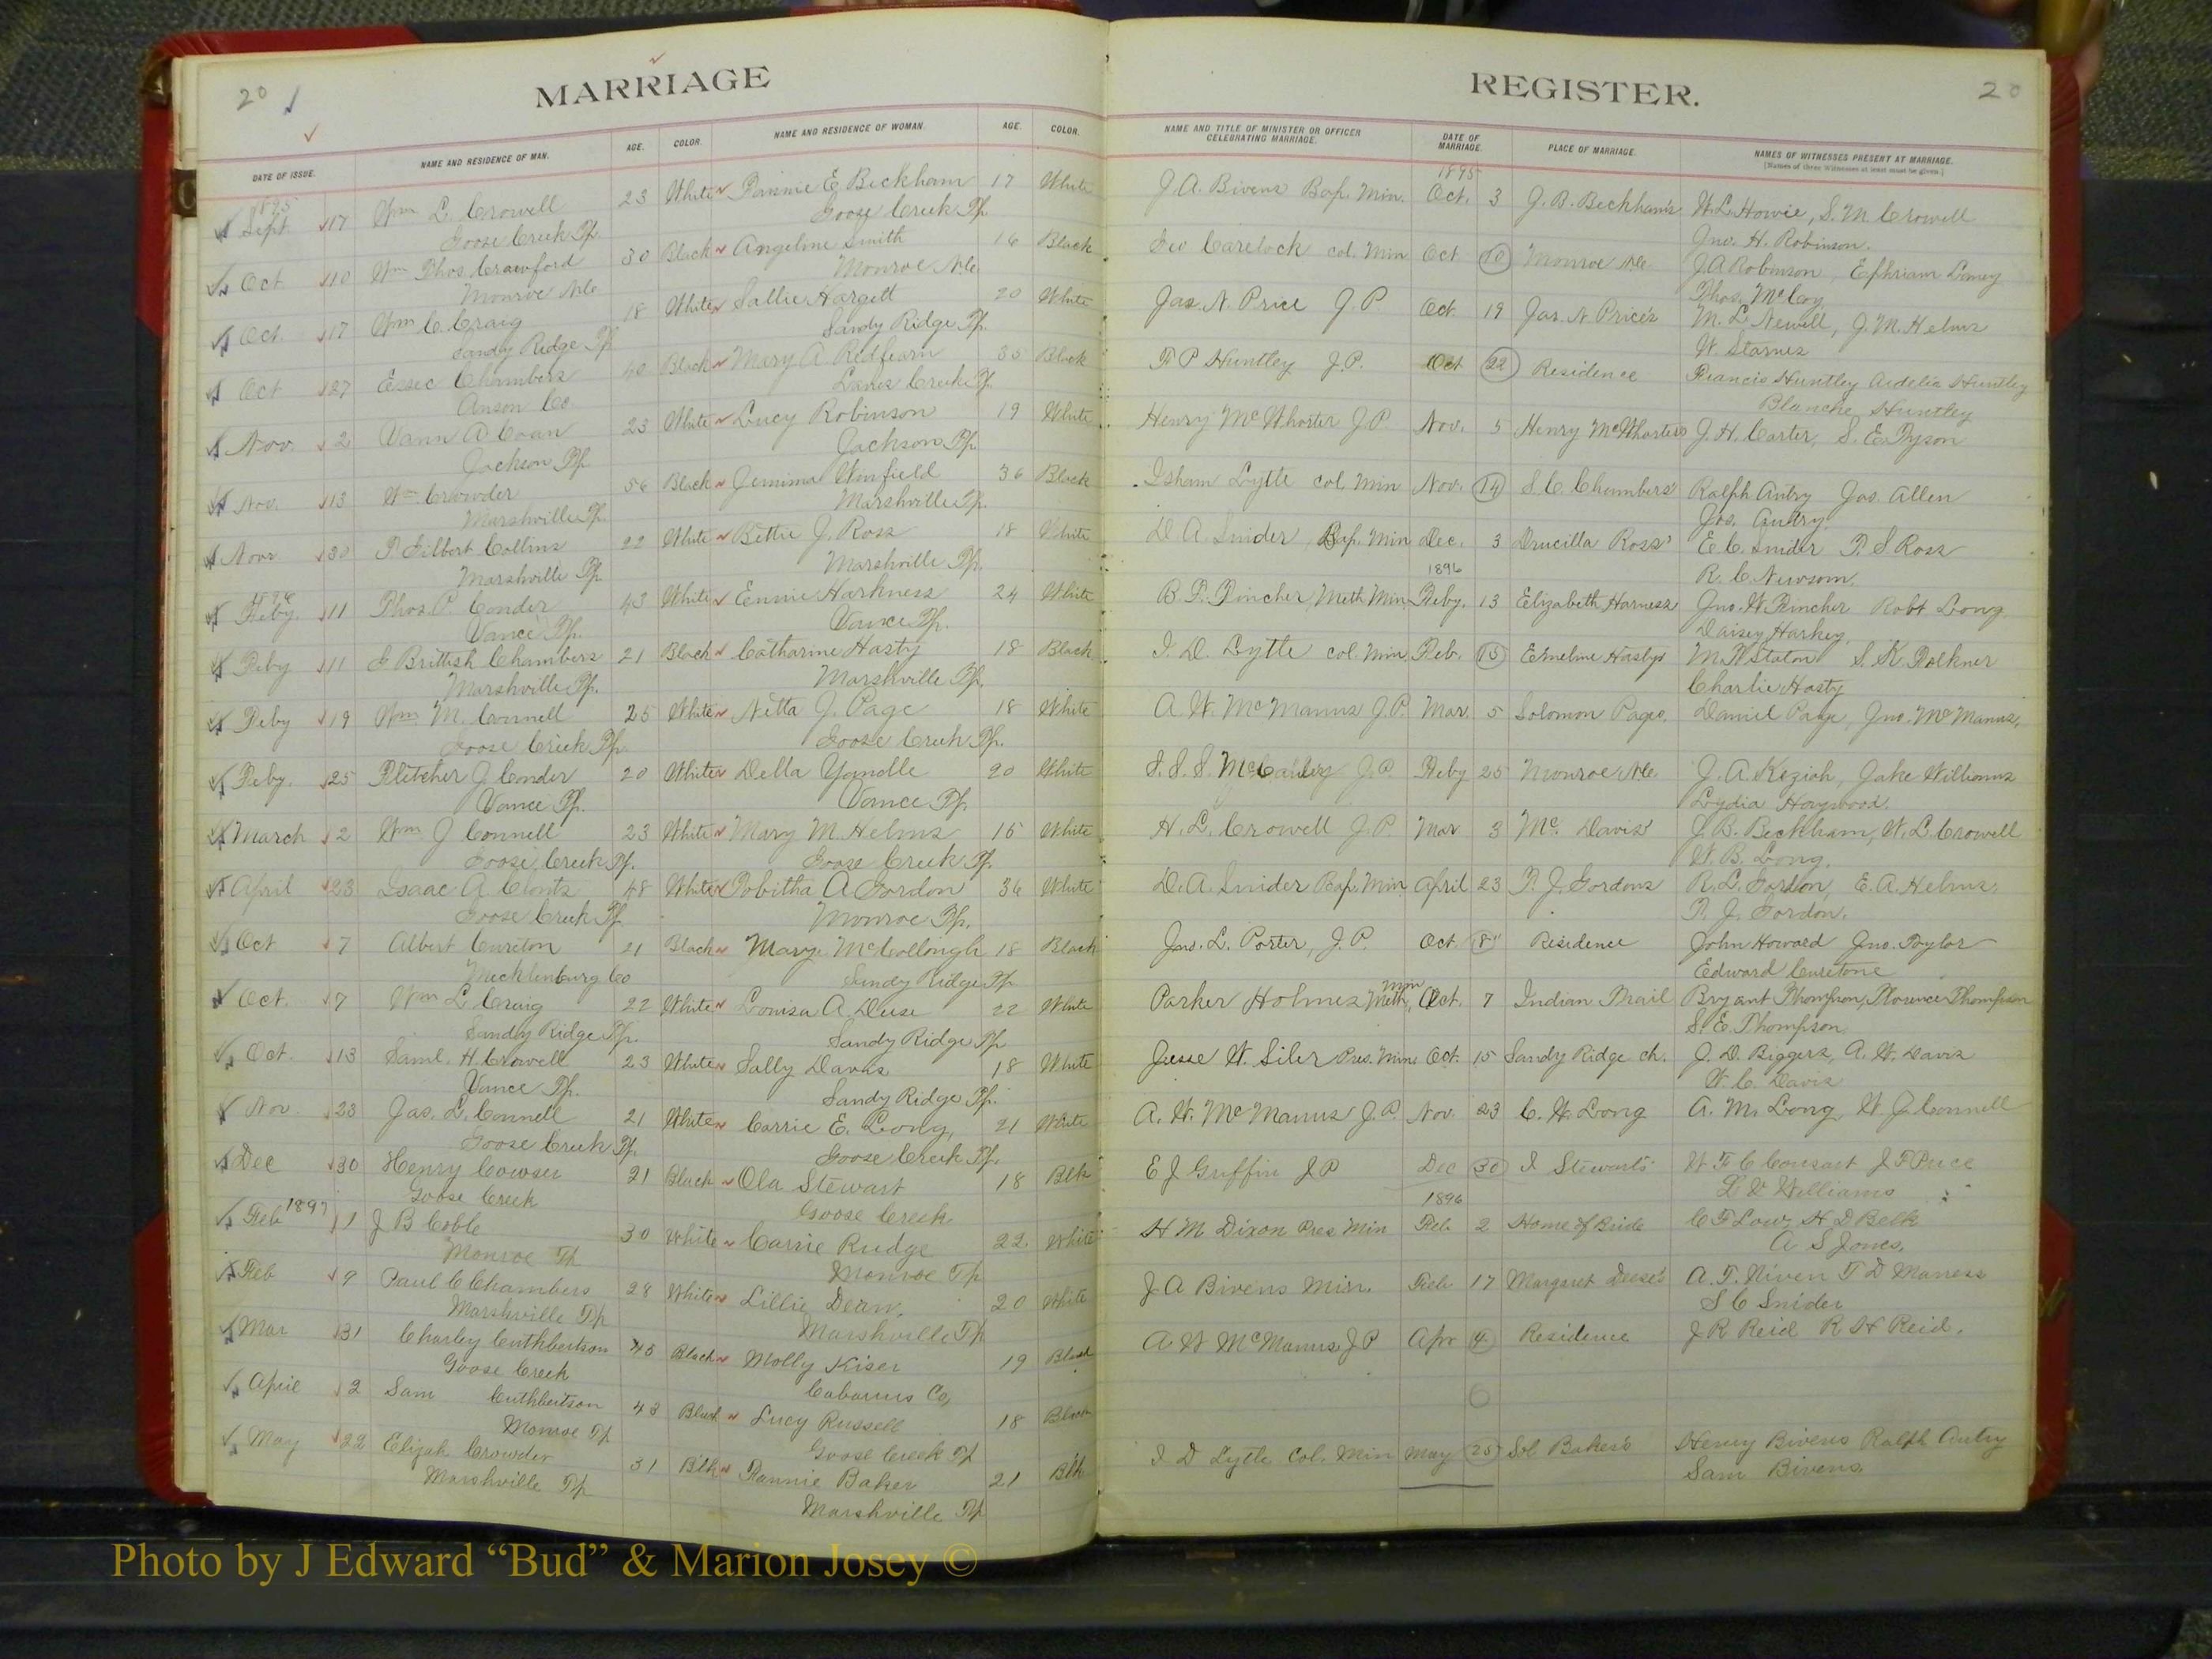 20
MARRIAGE
REGISTER.
20
DATE OF ISSUE.
NAME AND RESIDENCE OF MAN.
AGE.
COLOR.
NAME AND RESIDENCE OF WOMAN.
AGE.
COLOR.
NAME AND TITLE OF MINISTER OR OFFICER CELEBRATING MARRIAGE.
DATE OF MARRIAGE.
PLACE OF MARRIAGE.
NAMES OF WITNESSES PRESENT AT MARRIAGE.
[Names of three Witnesses at least must be given.]
1895 1895
Sept 17 Wm L. Crowell 23 White Fannie E Beckham 17 White J. A. Bivens Bap. Min. Oct. 3 J. B. Beckham's W. L. Howie, S. M. Crowell
Goose Creek Tp. Goose Creek Tp. Jno. H. Robinson.
Oct 10 Wm Thos Crawford 30 Black Angeline Smith 16 Black Geo Carelock col. Min Oct 10 Monroe N.C. J A Robinson, Ephriam
Monroe N.C. Monroe N.C. Thos. McCoy
Oct. 17 Wm C Craig 18 White Sallie Hargett 20 White Jas. N. Price J. P. Oct 19 Jas. N Price's M. L. Newell, J. M. Helms
Sandy Ridge Tp Sandy Ridge Tp. W. Starnes
Oct 27 Essec Chambers 40 Black Mary A. Redfearn 35 Black F P Huntley J. P. Oct 22 Residence Francis Huntley Ardelia Huntley
Anson Co Lanes Creek Tp. Blanche Huntley
Nov. 2 Vann A. Coan 23 White Lucy Robinson 19 White Henry McWhorter J P. Nov. 5 Henry McWhorters J. H. Carter, S. E. Tyson
Jackson Tp Jackson Tp.
Nov. 13 Wm Crowder 56 Black Jemima Winfield 36 Black Isham Lytle col Min Nov. 14 S. C. Chambers' Ralph Autry Jas. Allen
Marshville Tp. Marshville Tp. Jas. Autry.
Novr 30 T. Gilbert Collins 22 White Bettie J. Ross 18 White D. A. Snider, Bap. Min Dec. 3 Drucilla Ross' E. C. Snider T. S Ross
Marshville Tp. Marshville Tp. R. C. Newsom.
1896 1896
Feby. 11 Thos. P. Conder 43 White Ennie Harkness 24 White B. F. Fincher, Meth Min Feby. 13 Elizabeth Harness Jno. W. Fincher Robt Long
Vance Tp. Vance Tp. Daisey Harkey.
Feby 11 J Brittish Chambers 21 Black Catharine Hasty 18 Black I. D. Lytle col. Min. Feb. 15 Emeline Hasty's S. K Folkner
Marshville Tp. Marshville Tp. Charlie Hasty
Feby 19 Wm M. Connell 25 White Netta J. Page 18 White A. W. McManus J. P. Mar. 5 Solomon Pages. Daniel Page, Jno. McManus,
Goose Creek Tp. Goose Creek Tp.
Feby. 25 Fletcher J. Conder 20 White Della Yandle 20 White Feby 25 Monroe N.C. J. A. Keziah, Jake Williams
Vance Tp. Vance Tp. Lydia Haywood.
March 2 Wm J Connell 23 White Mary M. Helms 15 White H. L. Crowell J. P. Mar 3 Mc. Davis' J. B. Beckham, W. L. Crowell
Goose Creek Tp. Goose Creek Tp. W. B. Long.
April 23 Isaac A. Clontz 48 White Tobitha A Gordon 36 White D. A. Snider Bap. Min April 23 T. J. Gordons R. L. Gordon, E. A. Helms.
Goose Creek Tp Monroe Tp. T. J. Gordon.
Oct 7 Albert Cureton 21 Black Mary McCollough 18 Black Jas. L. Porter, J. P. Oct. 8 Residence John Howard Jno. Taylor
Mecklenburg Co Sandy Ridge Tp Edward Curetone
Oct. 7 Wm L. Craig 22 White Louisa A. Duse 22 White Parker Holmes Meth. Min Oct. 7 Indian Trail Bryant Thompson, Florence Thompson
Sandy Ridge Tp. Sandy Ridge Tp S. E. Thompson
Oct. 13 Saml. H. Crowell 23 White Sally Davis 18 White Jesse W. Siler Pres. Min. Oct. 15 Sandy Ridge ch. J. D. Biggers, A. W. Davis
Vance Tp. Sandy Ridge Tp. W. C. Davis
Nov. 23 Jas. L. Connell 21 White Carrie E. Long, 21 White A. W. McManus J. P. Nov. 23 C. W Long A. M. Long, W. J. Connell
Goose Creek Tp. Goose Creek Tp.
Dec 30 Henry Cowser 21 Black Ola Stewart 18 Blk E J Griffin J P Dec 30 Stewart's W F C Cousart J F Price
Goose Creek Goose Creek Williams
1897 1896
Feb 1 J B Coble 30 White Carrie Rudge 22 White H M Dixon Pres Min Feb. 2 Home of Bride C F Low, H D Belk
Monroe Tp Monroe Tp A S Jones.
Feb 9 Paul C Chambers 28 White Lillie Dean. 20 White J A Bivens Min. Feb 17 Margaret Deese's A. F. Niven T D Maness
Marshville Tp Marshville Tp S C Snider
Mar 31 Charley Cuthbertson 45 Black Molly Kiser 19 Black A W McManus J P Apr 4 Residence J R Reid R H Reid.
Goose Creek Cabarrus Co,
April 2 Sam Cuthbertson 43 Black Lucy Russell 18 Black
Monroe Tp Goose Creek Tp
May 22 Elijah Crowder 31 Blk Fannie Baker 21 Blk I D Lytle Col. Min May 25 Sol Baker's Henry Bivens Ralph Autry
Marshville Tp Marshville Tp Sam Bivens
Photo by J Edward “Bud” & Marion Josey ©